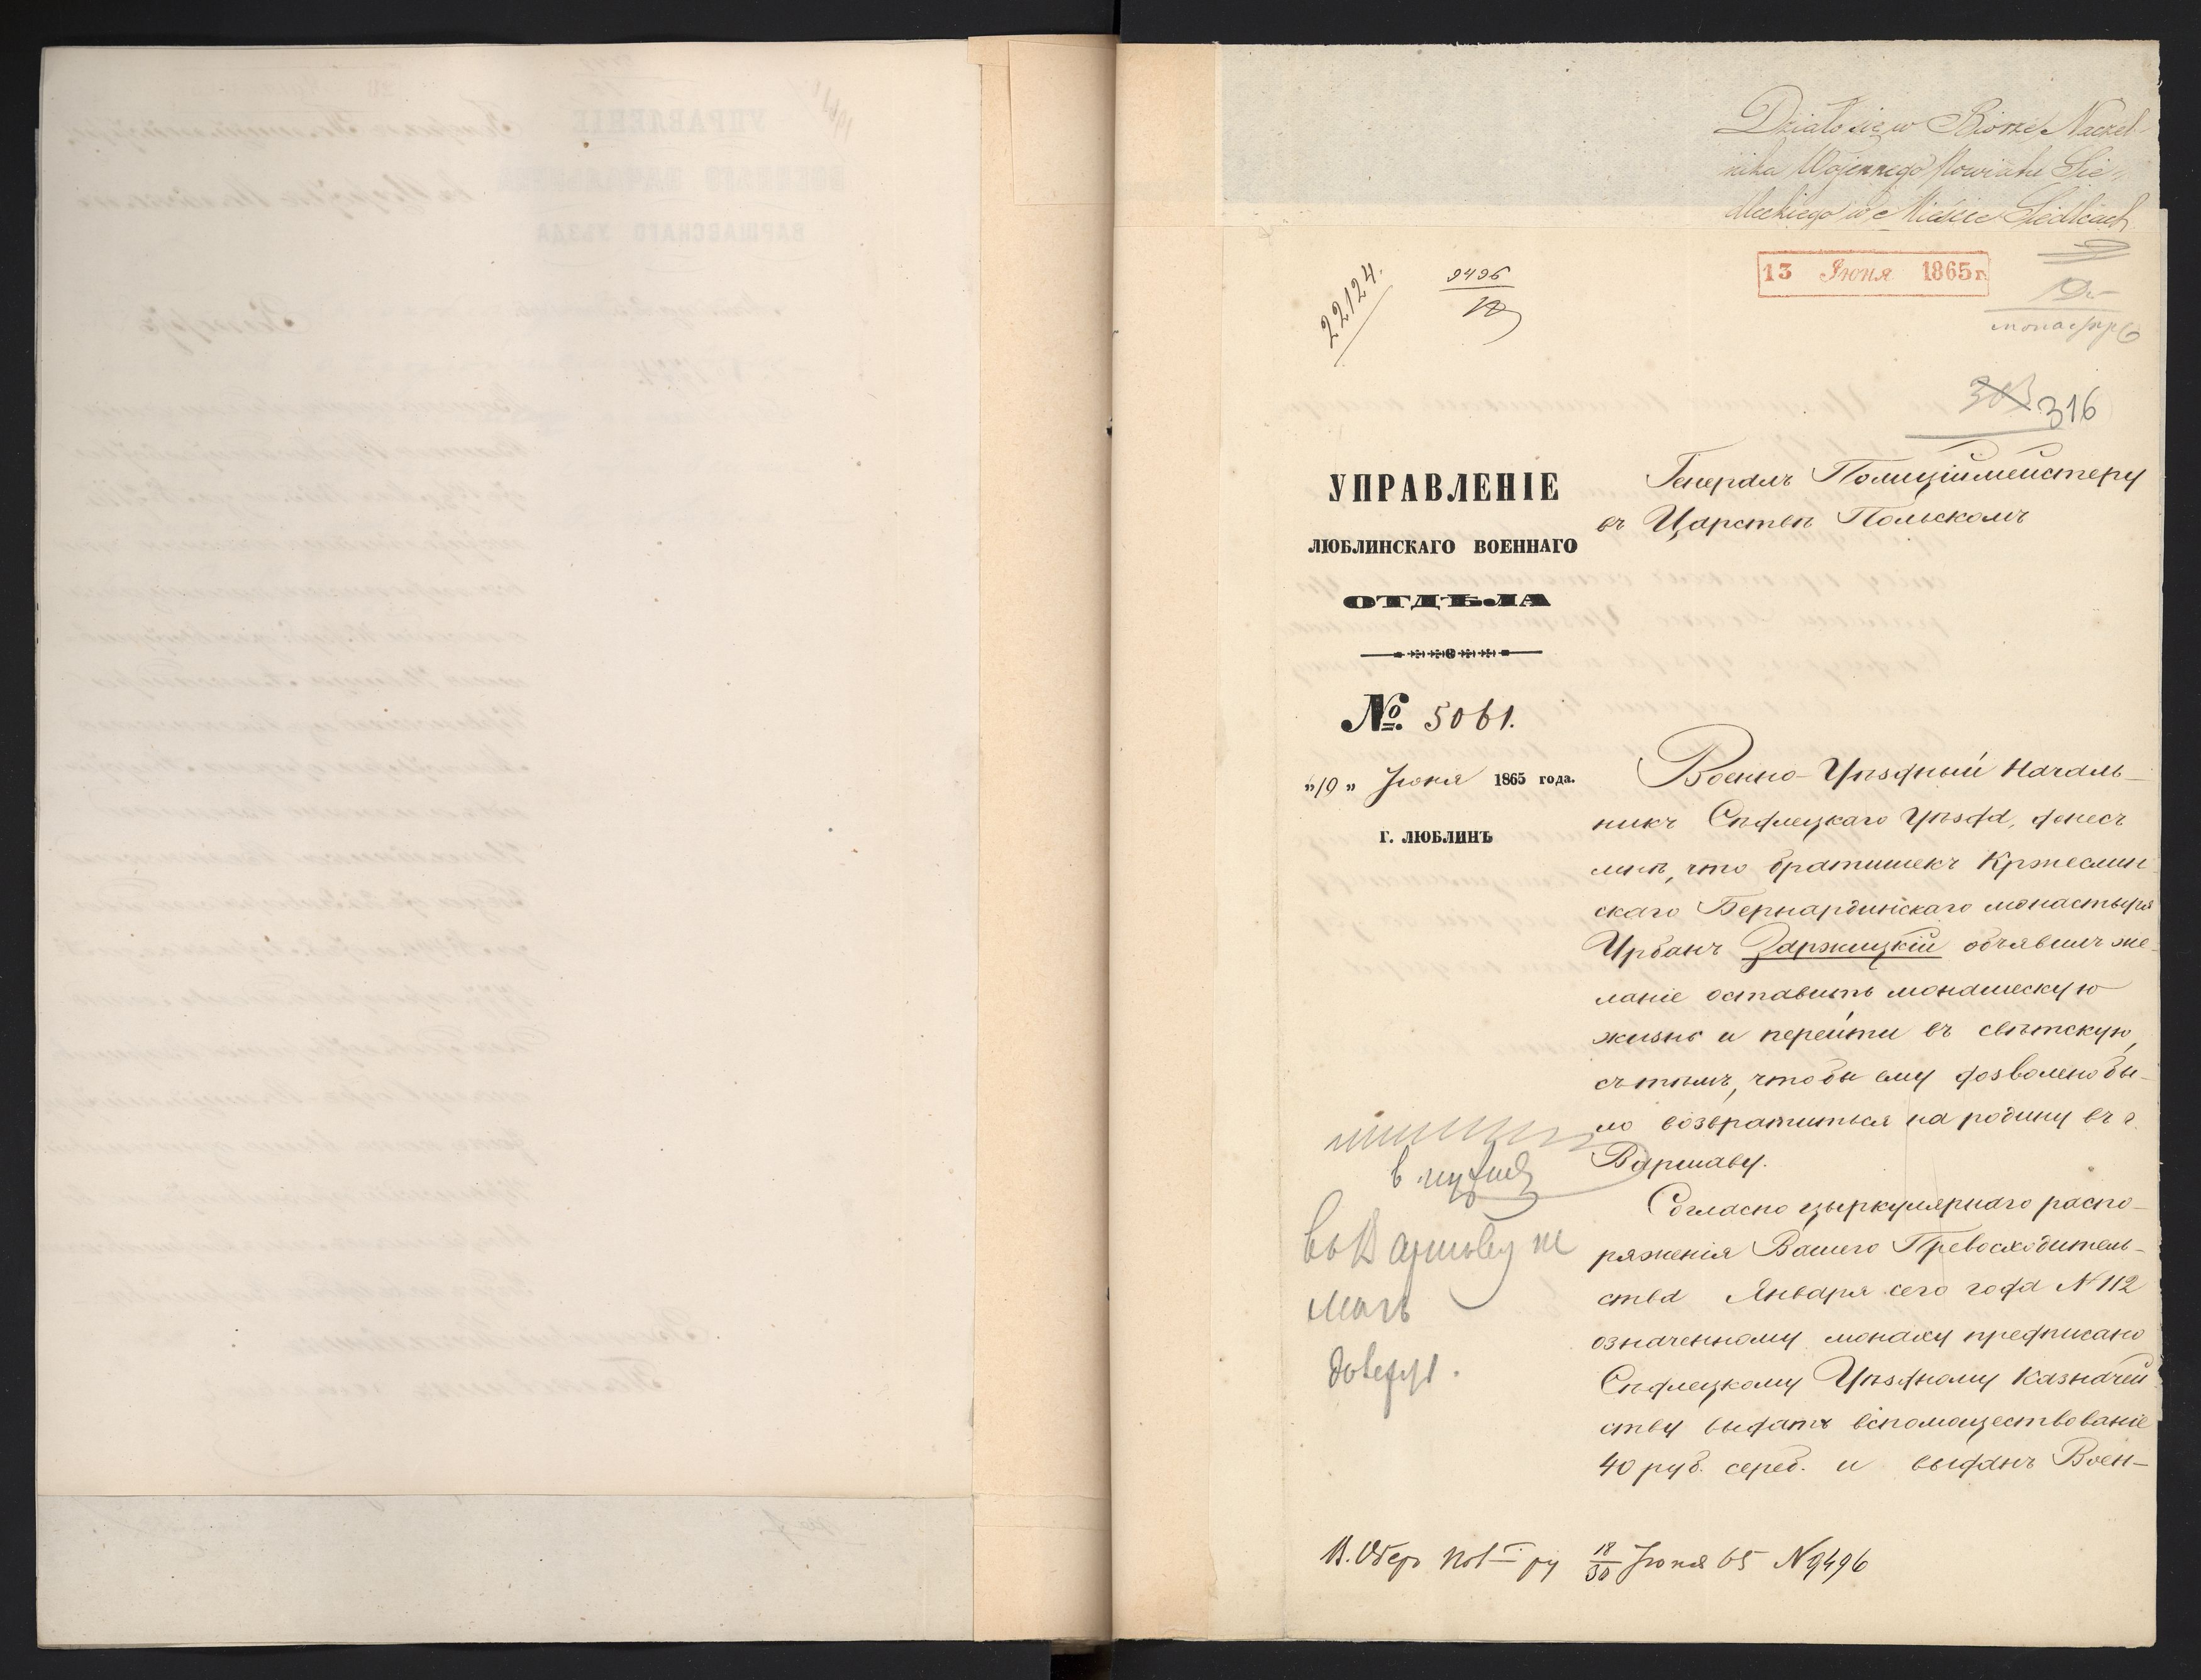 Działo się w Biorze Naczel-
nika Wojennego Powiatu Sie-
dleckiego w Mieście Siedlcach
22124.
9496
13 Июня 1865 г.
303 316
УПРАВЛЕНІЕ
ЛЮБЛИНСКАГО ВОЕННАГО
ОТДѢЛА
№ 5061.
"10" Июня 1865 года.
Г. ЛЮБЛИНЪ
Генералъ Полиціймейстеру
въ Царствѣ Польскомъ
Военно-Уѣздный Началь-
никъ Сѣдлецкаго Уѣзда, донесъ
мнѣ, что братишекъ Кржеслин
скаго Бернардинскаго монастыря
Урбанъ Заржицкій объявилъ же-
ланіе оставить монашескую
жизнь и перейти въ свѣтскую,
съ тѣмъ, чтобы ему дозволено бы-
ло возвратиться на родину въ г.
Варшаву.
Согласно цыркулярнаго распо-
ряженія Вашего Превосходитель-
ства Января сего года № 112
означенному монаху предписано
Сѣдлецкому Уѣздному Казначей
ству выдать вспомоществованіе
40 руб. сереб. и выданъ Воен-
18/30 Июня 65 № 9496